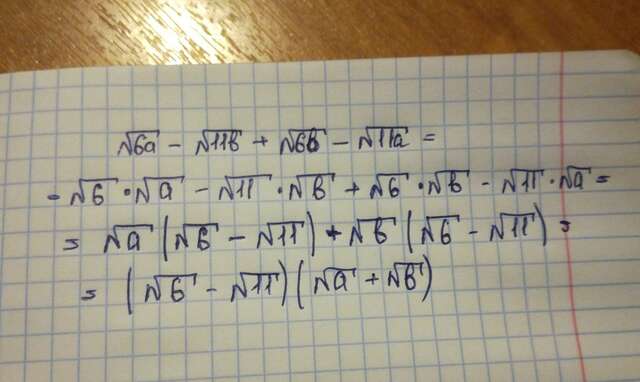 √6a - √11b + √6b - √11a =
= √6 · √a - √11 · √b + √6 · √b - √11 · √a =
= √a (√6 - √11) + √b (√6 - √11) =
= (√6 - √11) (√a + √b)